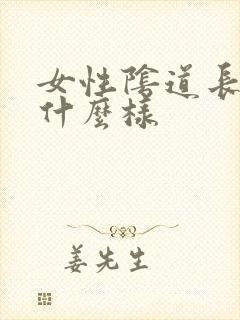 女性陰道長
什麼樣
姜先生